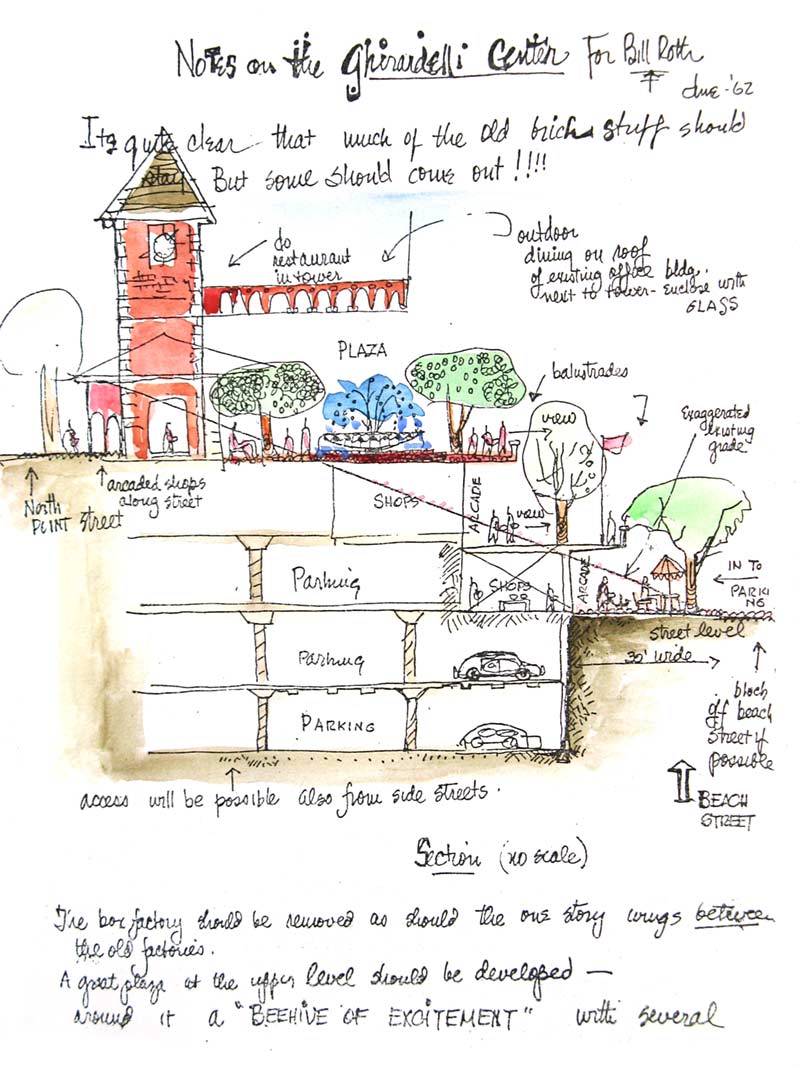 Notes on the Ghirardelli Center For Bill Roth
June - '62
Its quite clear that much of the old brick stuff should
stay - But some should come out!!!!
do
restaurant
in tower
outdoor
dining on roof
of existing office bldg.
next to tower - enclose with
GLASS
PLAZA
balustrades
view
Exaggerated
existing
grade
North
POINT street
arcaded shops
along street
SHOPS
ARCADE
view
Parking
SHOPS
ARCADE
IN TO
PARKI
NG
street level
Parking
30' wide
PARKING
block
off beach
street if
possible
access will be possible also from side streets.
BEACH
STREET
Section (no scale)
The box factory should be removed as should the one story wings between
the old factories.
A great plaza at the upper level should be developed —
around it a "BEEHIVE OF EXCITEMENT" with several